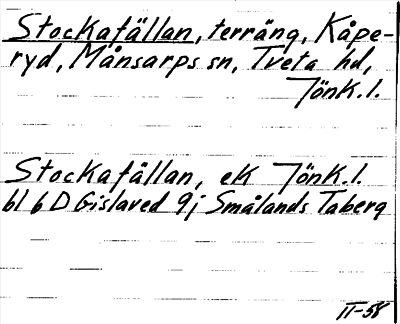 Stockafällan, terräng, Kåpe-
ryd, Månsarps sn, Tveta hd,
Jönk. l.
Stockafällan, ek Jönk. l.
bl 6 D Gislaved 9j Smålands Taberg
II-58